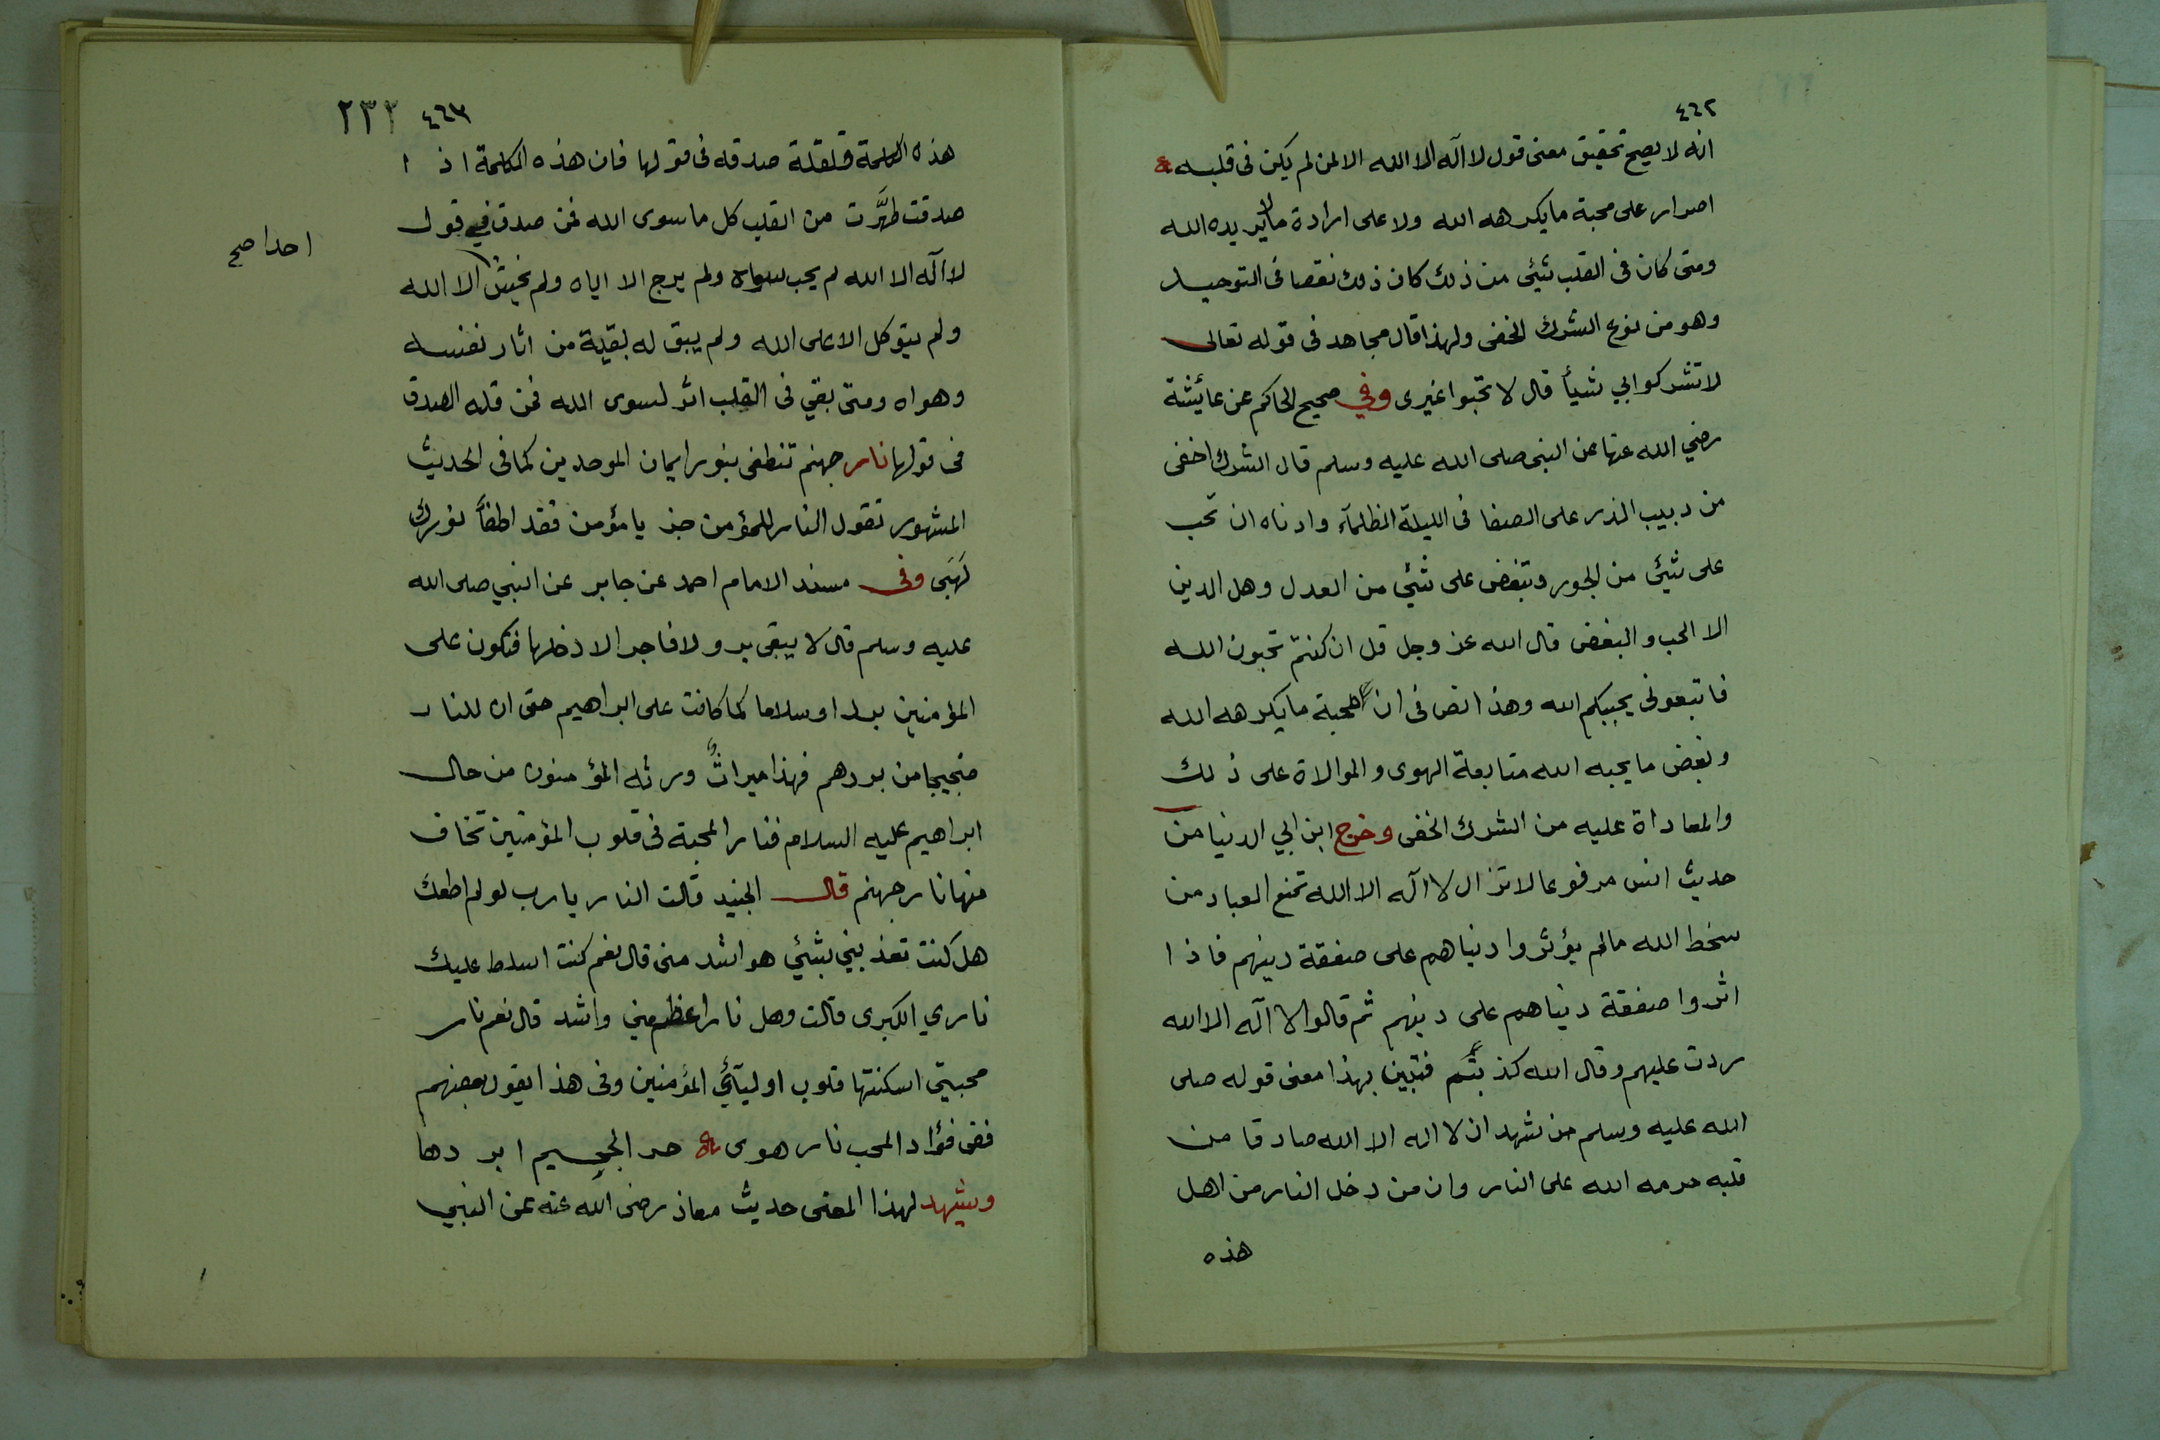 ٤٦٢
انه لا يصح تحقيق معنى قول لا اله الا الله الا لمن لم يكن فى قلبه
اصرار على محبة ما يكرهه الله ولا على ارادة ما لا يريده الله
ومتى كان فى القلب شيئ من ذلك كان ذلك نقصا فى التوحيد
وهو من نوع الشرك الخفى ولهذا قال مجاهد فى قوله تعالى
لا تشركوا بي شيأ قال لا تحبوا غيرى وفي صحيح الحاكم عن عائيشة
رضي الله عنها عن النبى صلى الله عليه وسلم قال الشرك اخفى
من دبيب الذر على الصفا فى الليلة الظلمآء وادناه ان تحب
على شيئ من الجور وتبغض على شيئ من العدل وهل الدين
الا الحب والبغض قال الله عز وجل قل ان كنتم تحبون الله
فاتبعونى يحببكم الله وهذا نص فى ان محبة ما يكرهه الله
وبغض ما يحبه الله متابعة الهوى والموالاة على ذلك
والمعاداة عليه من الشرك الخفى وخرج ابن ابي الدنيا من
حديث انس مرفوعا لا تزال لا اله الا الله تمنع العباد من
سخط الله مالم يؤثروا دنياهم على صفقة دينهم فاذا
اثروا صفقة دنياهم على دينهم ثم قالوا لا اله الا الله
ردت عليهم وقال الله كذبتم فتبين بهذا معنى قوله صلى
الله عليه وسلم من شهد ان لا اله الا الله صادقا من
قلبه حرمه الله على النار وان من دخل النار من اهل
هذه
٤٦٣ ٢٣٢
هذه الكلمة فلقلة صدقه فى قولها فان هذه الكلمة اذا
صدقت طهَّرت من القلب كل ما سوى الله فمن صدق في قول
لا اله الا الله لم يحب سواه ولم يرج الا اياه ولم يخش الا الله
احدا صح
ولم يتوكل الا على الله ولم يبق له بقية من اثار نفسه
وهواه ومتى بقي فى القلب اثر لسوى الله فمن قلة الصدق
فى قولها نار جهنم تنطفى بنور ايمان الموحدين كما فى الحديث
المشهور تقول النار للمؤمن جز يا مؤمن فقد اطفأ نورك
لَهَبى وفى مسند الامام احمد عن جابر عن النبي صلى الله
عليه وسلم قال لا يبقى بر ولا فاجر الا دخلها فتكون على
المؤمنين بردا وسلاما كما كانت على ابراهيم حتى ان للنار
ضجيجا من بردهم فهذا ميراث ورثه المؤمنون من حال
ابراهيم عليه السلام فنار المحبة فى قلوب المؤمنين تخاف
منها نار جهنم قال الجنيد قالت النار يا رب لو لم اطعك
هل كنت تعذبني بشيئ هو اشد منى قال نعم كنت اسلط عليك
ناري الكبرى قالت وهل نار اعظم مني واشد قال نعم نار
محبتي اسكنتها قلوب اوليآئي المؤمنين وفى هذا يقول بعضهم
ففى فؤاد المحب نار هوى حر الجحيم ابردها
ويشهد لهذا المعنى حديث معاذ رضى الله عنه عن النبي